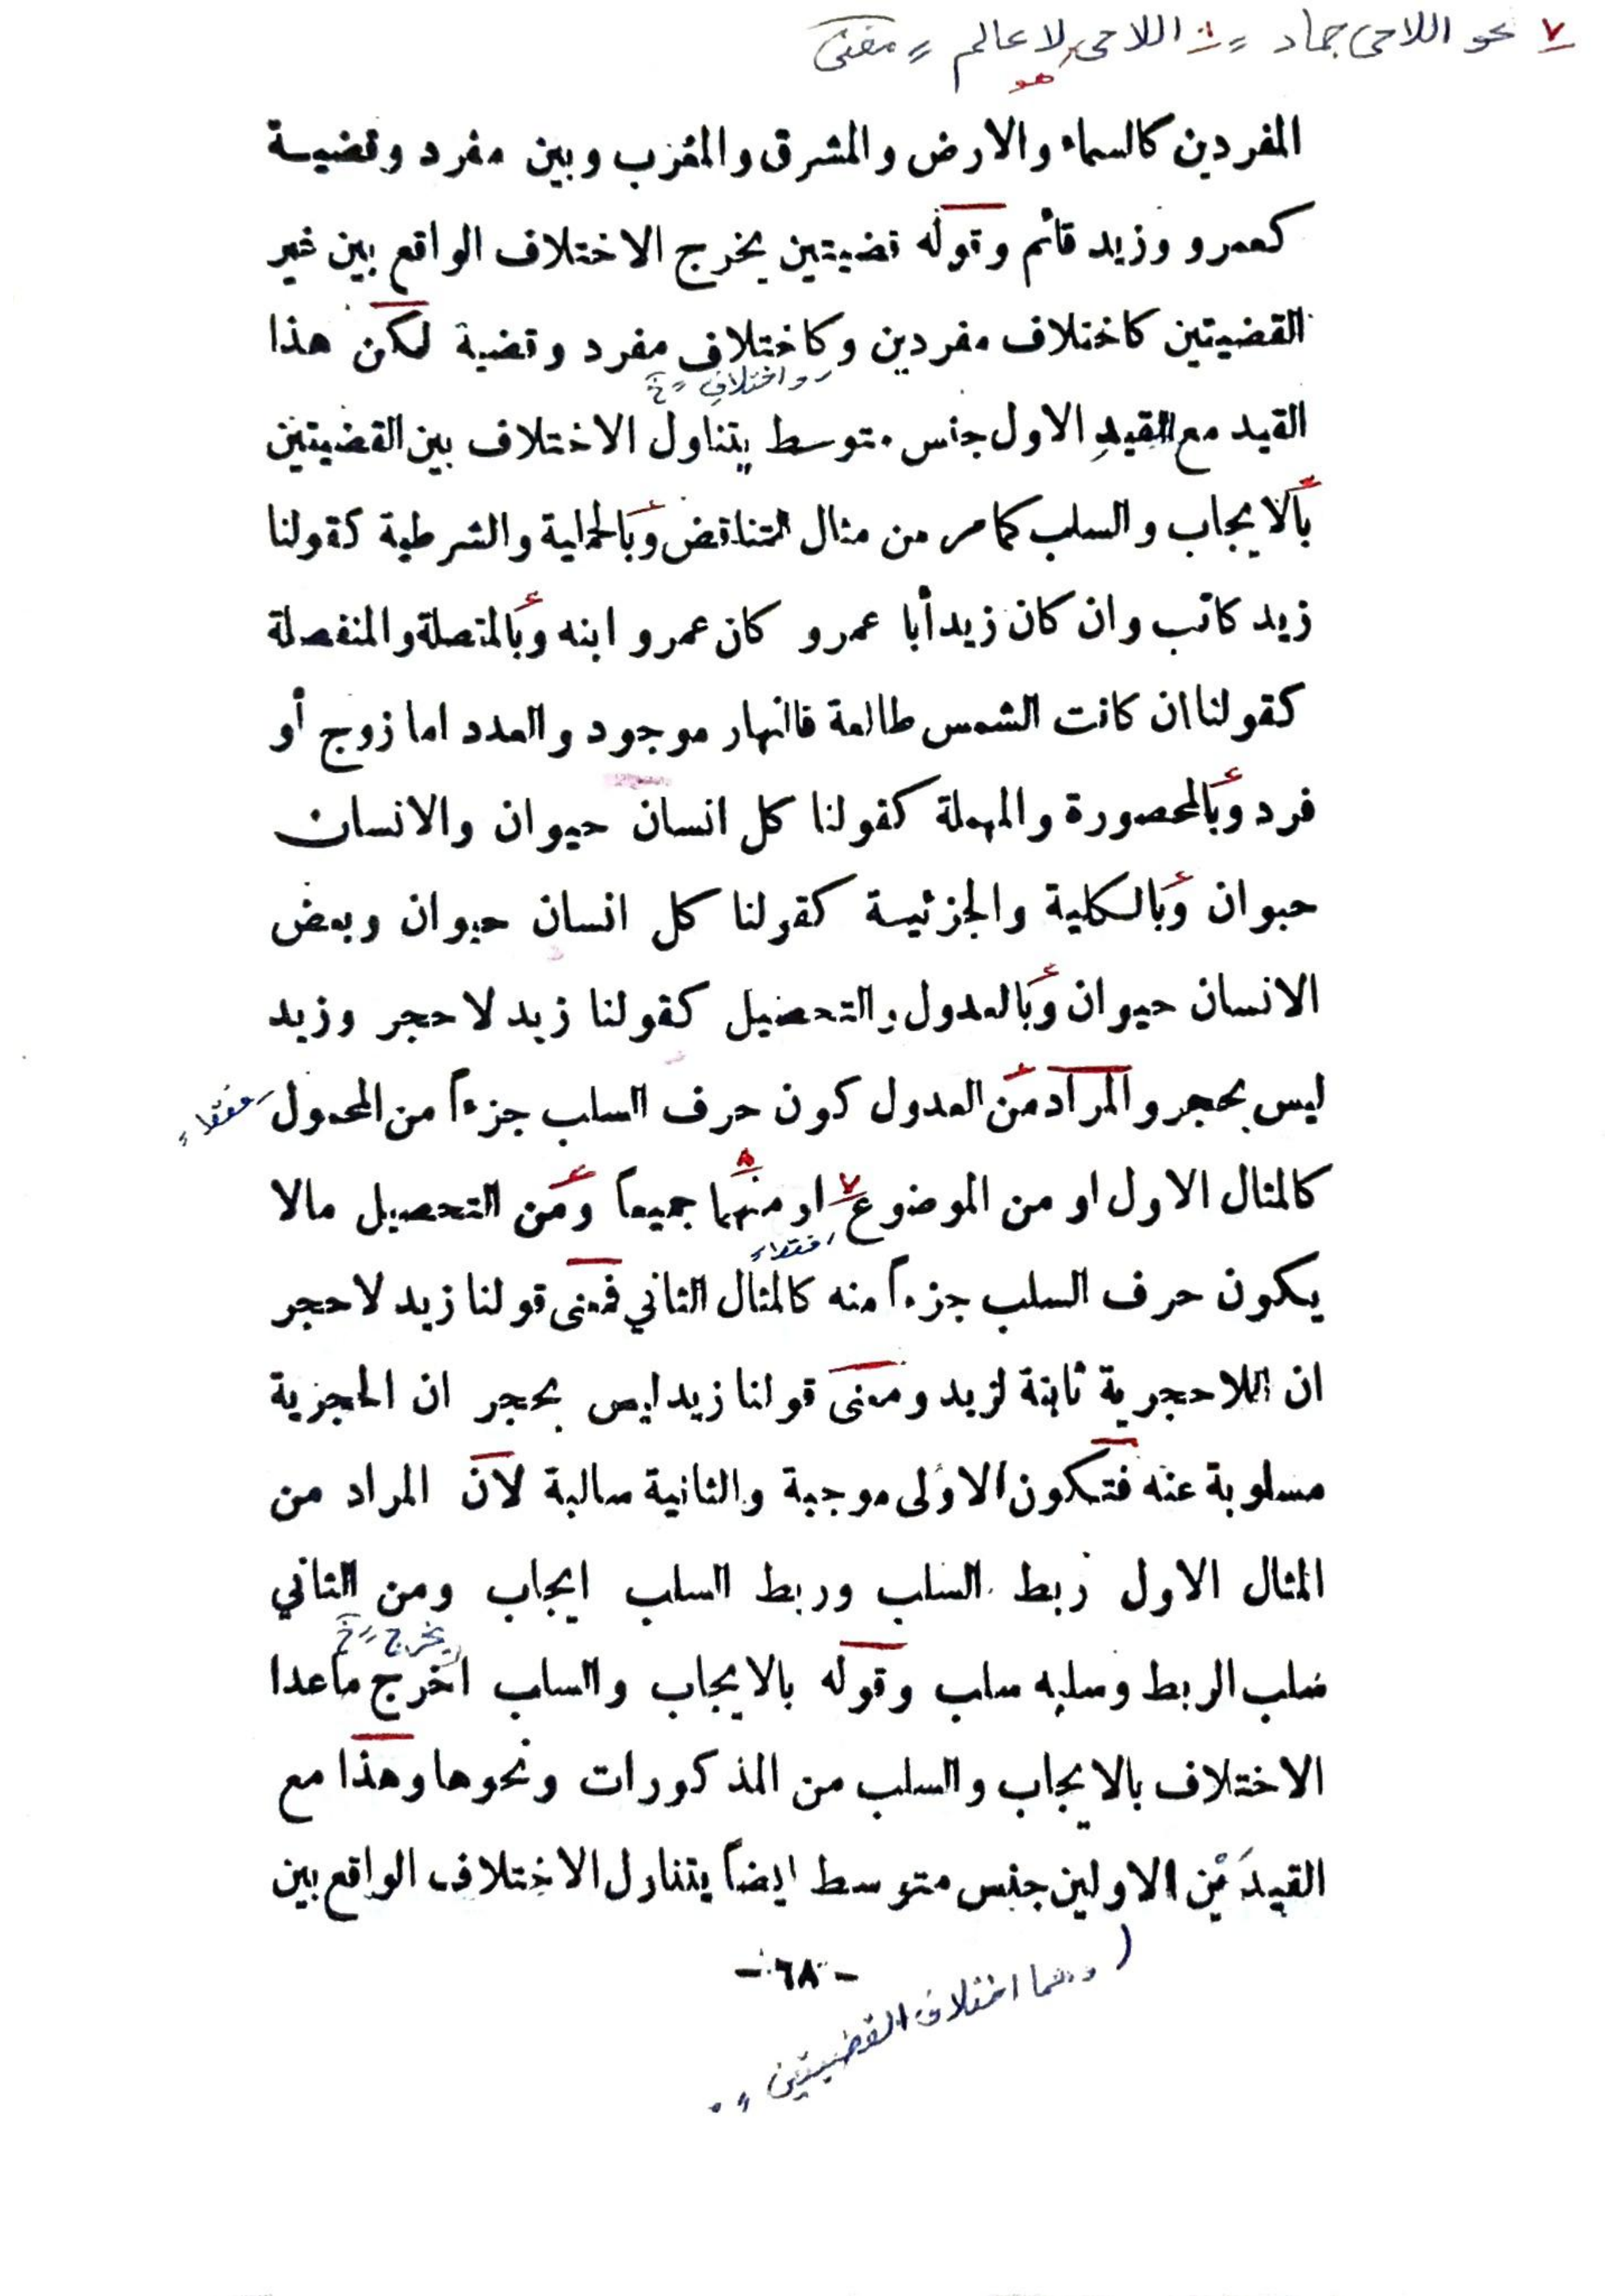 ٧ نحو اللاحي جماد ٨ اللاحي لا عالم
هو
المفردين كالسماء والارض والمشرق والمغرب وبين مفرد وقضية
كعمرو وزيد قائم وقوله قضيتين يخرج الاختلاف الواقع بين غير
القضيتين كاختلاف مفردين وكاختلاف مفرد وقضية لكن هذا
واختلاف خ
القيد مع القيد الاول جنس متوسط يتناول الاختلاف بين القضيتين
بالايجاب والسلب كما مر من مثال التناقض وبالحملية والشرطية كقولنا
زيد كاتب وان كان زيد أبا عمرو كان عمرو ابنه وبالمتصلة والمنفصلة
كقولنا ان كانت الشمس طالعة فالنهار موجود والعدد اما زوج أو
فرد وبالمحصورة والمهملة كقولنا كل انسان حيوان والانسان
حيوان وبالكلية والجزئية كقولنا كل انسان حيوان وبعض
الانسان حيوان وبالعدول والتحصيل كقولنا زيد لا حجر وزيد
ليس بحجر والمراد من العدول كون حرف السلب جزءاً من المحمول فقط
كالمثال الاول او من الموضوع ٧ او منهما ٨ جميعاً ومن التحصيل مالا
فقط
يكون حرف السلب جزءاً منه كالمثال الثاني فمعنى قولنا زيد لا حجر
ان اللاحجرية ثابتة لزيد ومعنى قولنا زيد ليس بحجر ان الحجرية
مسلوبة عنه فتكون الاولى موجبة والثانية سالبة لان المراد من
المثال الاول ربط السلب وربط السلب ايجاب ومن الثاني
يخرج خ
سلب الربط وسلبه سلب وقوله بالايجاب والسلب اخرج ماعدا
الاختلاف بالايجاب والسلب من المذكورات ونحوها وهذا مع
القيدَيْن الاولين جنس متوسط ايضاً يتناول الاختلاف الواقع بين
- ٦٨ -
( وهما اختلاف القضيتين